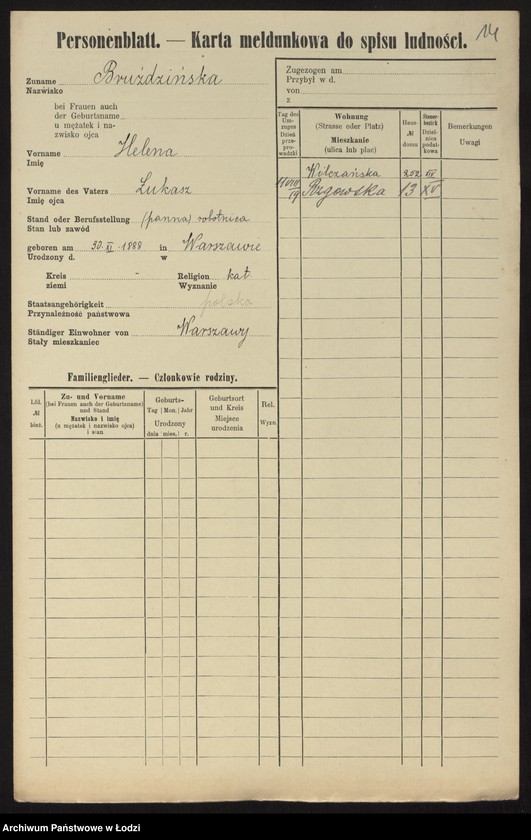 14
Personenblatt. — Karta meldunkowa do spisu ludności.
Zuname Bruździńska
Nazwisko
bei Frauen auch
der Geburtsname
u mężatek i na-
zwisko ojca
Vorname Helena
Imię
Vorname des Vaters Łukasz
Imię ojca
Stand oder Berufsstellung (panna) robotnica
Stan lub zawód
geboren am 30. XI. 1888 in Warszawie
Urodzony d. w
Kreis " Religion kat
ziemi Wyznanie
Staatsangehörigkeit polska
Przynależność państwowa
Ständiger Einwohner von Warszawy
Stały mieszkaniec
Familienglieder. — Członkowie rodziny.
Lfd. № bież.
Zu- und Vorname
(bei Frauen auch der Geburtsname)
und Stand
Nazwisko i imię
(u mężatek i nazwisko ojca)
i stan
Geburts-
Tag Mon. Jahr
Urodzony
dnia mies. r.
Geburtsort
und Kreis
Miejsce
urodzenia
Rel.
Wyzn.
Zugezogen am
Przybył w d.
von
z
Tag des
Um-
zuges
Dzień
prze-
prowadzki
Wohnung
(Strasse oder Platz)
Mieszkanie
(ulica lub plac)
Haus-
№
domu
Steuer-
bezirk
Dziel-
nica
podat-
kowa
Bemerkungen
Uwagi
Wilczańska 252
Rzgowska 13 XV
Archiwum Państwowe w Łodzi